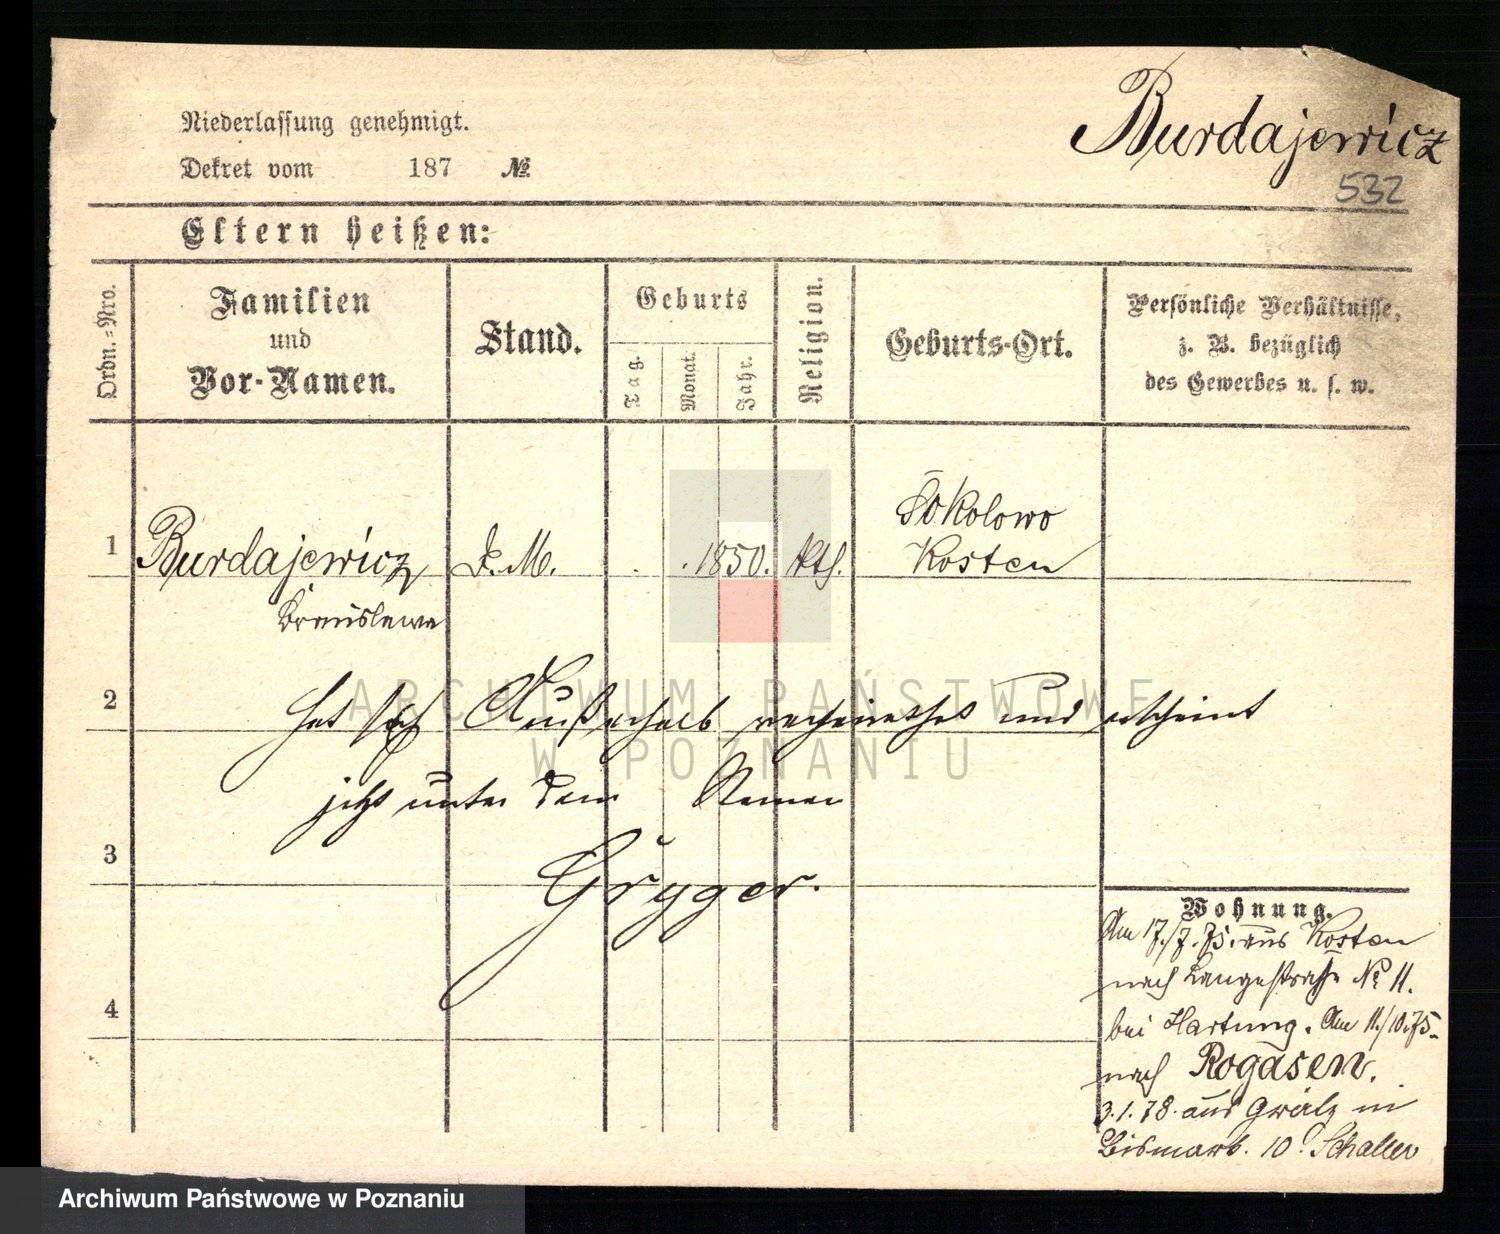 Burdajewicz
532
Niederlassung genehmigt.
Dekret vom 187 №
Eltern heißen:
Ordn.-Nro.
Familien
und
Vor-Namen.
Stand.
Geburts
Tag.
Monat.
Jahr.
Religion.
Geburts-Ort.
Persönliche Verhältnisse,
z. B. bezüglich
des Gewerbes u. s. w.
1 Burdajewicz D. M. 1850. kth.
Sokolowo
Kosten
2
hat sich Außerhalb verheirathet und erscheint
jetzt unter dem Namen
3
Gryger.
4
Wohnung.
Am 17./7. 75. aus Kosten
nach Langestraße № 11.
bei Hartung. Am 11./10.75.
nach Rogasen.
3.1.78. aus in
Bismark. 10 Schaller
ARCHIWUM PAŃSTWOWE
W POZNANIU
Archiwum Państwowe w Poznaniu